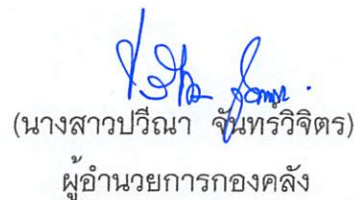 (นางสาวปวีณา จันทร์วิจิตร)
ผู้อำนวยการกองคลัง